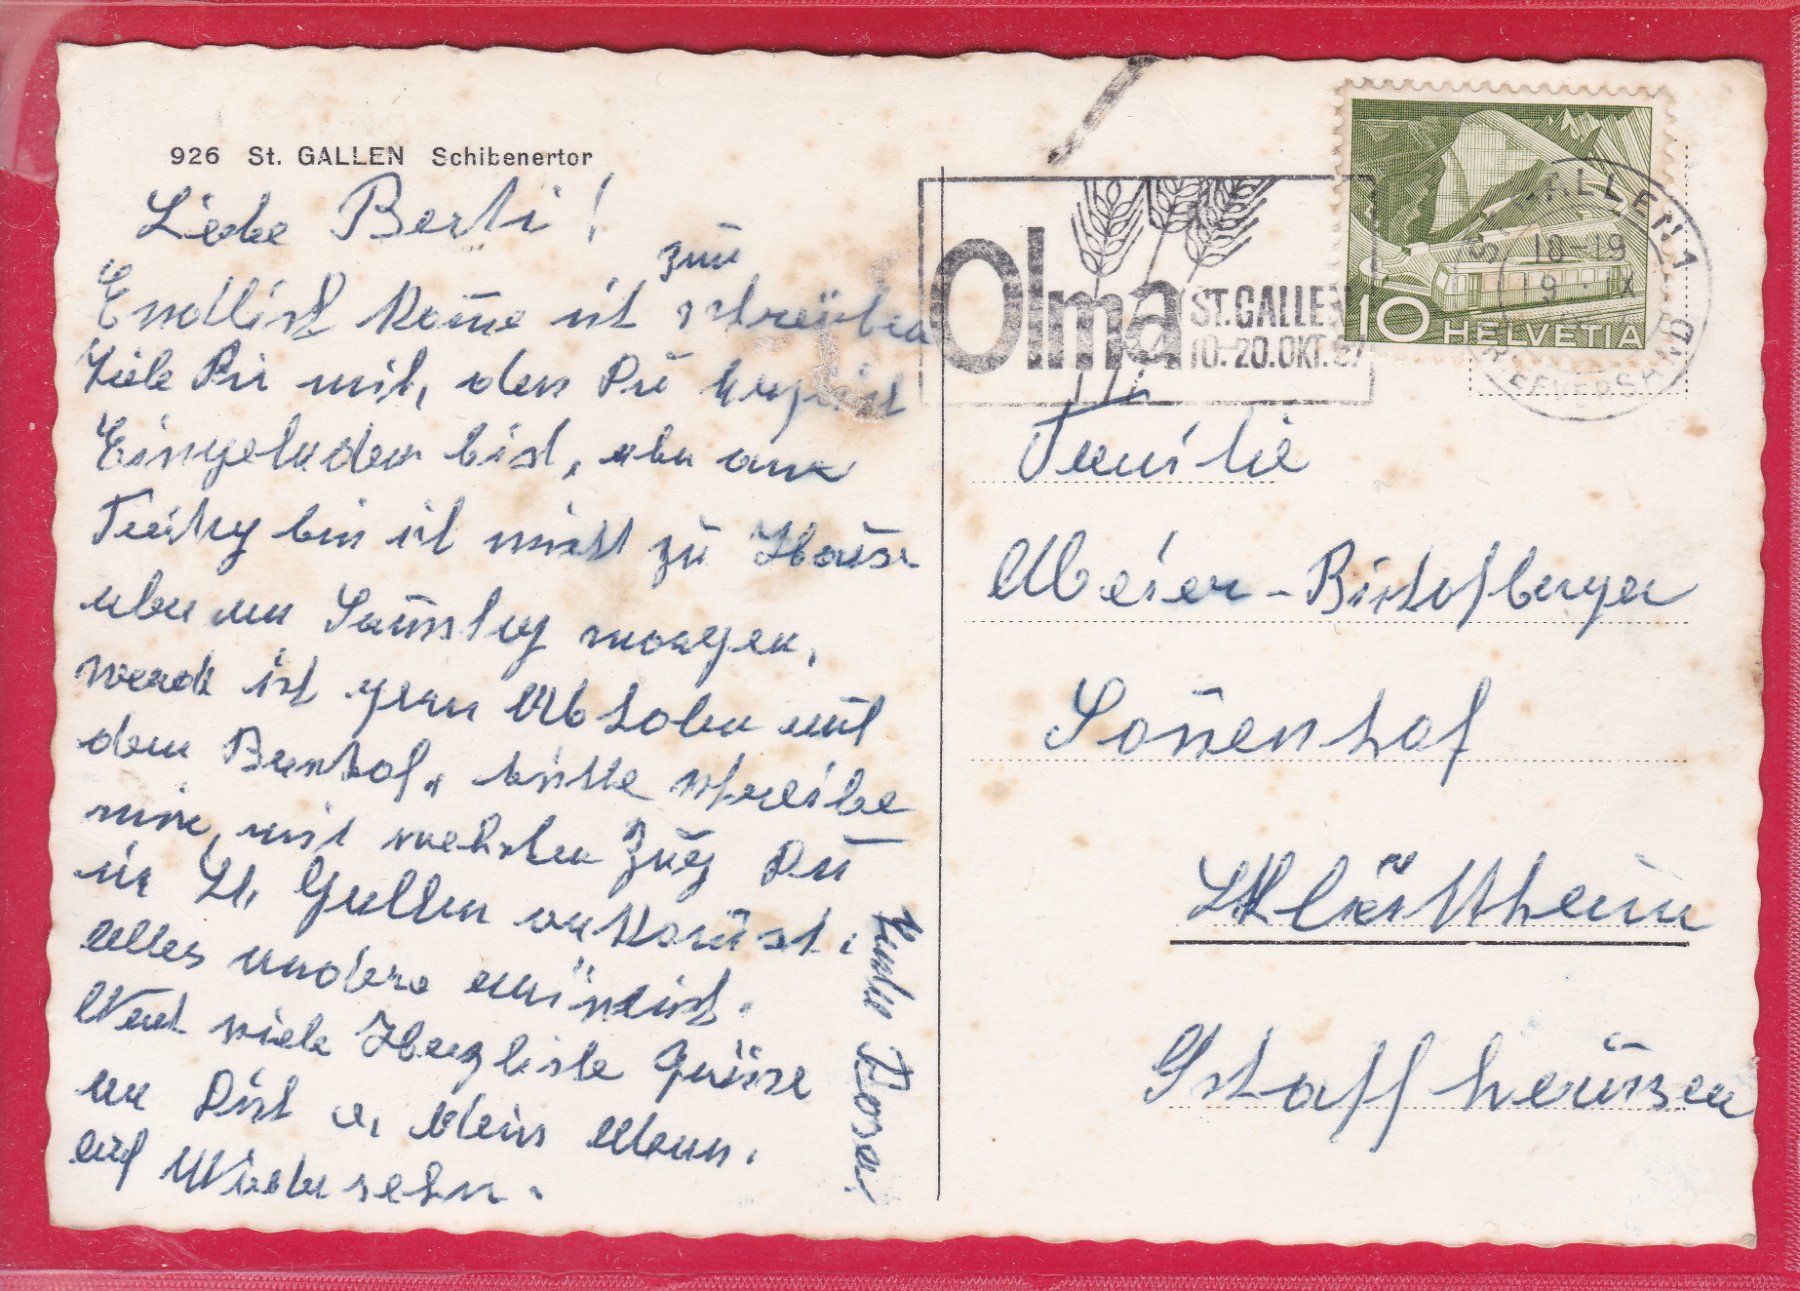 926 St. GALLEN Schibenertor
Liebe Berti!
zum
Endlich kome ich schreiben
Teile Dir mit, das Du herzlich
Eingeladen bist, aber am
Freitag bin ich nicht zu Hause
aber am Samstag morgen,
werde ich gern Abholen auf
dem Bahnhof, bitte schreibe
mir, mit welchen Zug Du
in St. Gallen ankomst.
alles andere mündlich.
Viele Herzliche Grüsse
an Dich u, klein
auf Wiedersehn.
Rosa
Olma
ST. GALLEN
10.-20. OKT. 57
GALLEN 1
18-19
19. IX
BRIEFVERSAND
10 HELVETIA
Familie
Meier-Bischofberger
Sonenhof
Schlattheim
Gstaffhausen